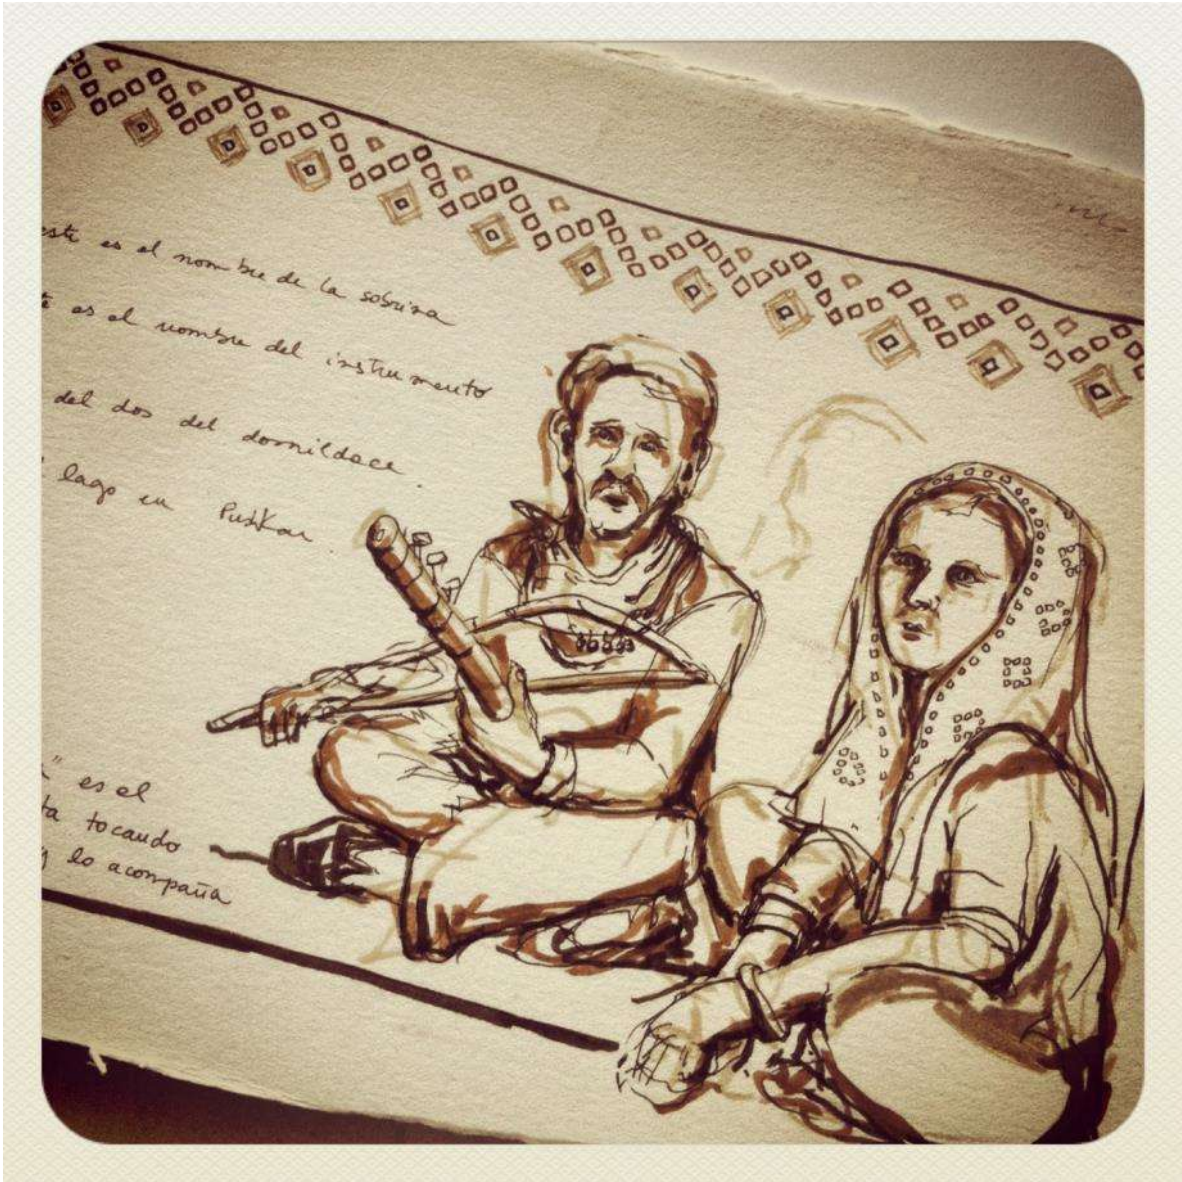 este es el nombre de la sobrina
es el nombre del instrumento
del dos del
lago en Puskar.
" es el
ta tocando
y lo acompaña